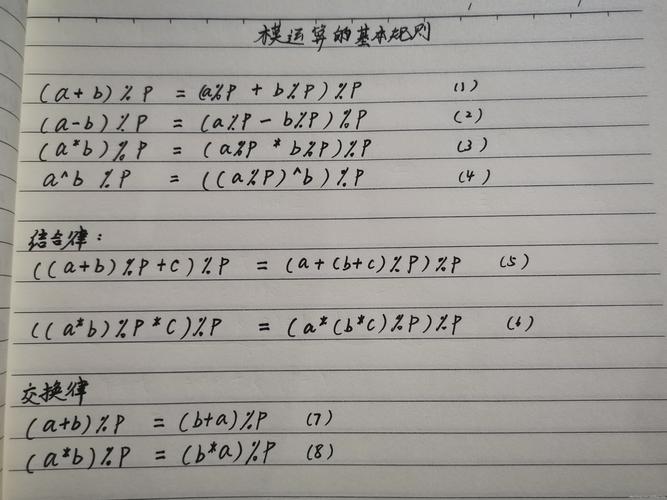 模运算的基本规则
(a+b)%P = (a%P + b%P)%P (1)
(a-b)%P = (a%P - b%P)%P (2)
(a*b)%P = (a%P * b%P)%P (3)
a^b %P = ((a%P)^b)%P (4)
结合律：
((a+b)%P+c)%P = (a+(b+c)%P)%P (5)
((a*b)%P*C)%P = (a*(b*C)%P)%P (6)
交换律
(a+b)%P = (b+a)%P (7)
(a*b)%P = (b*a)%P (8)